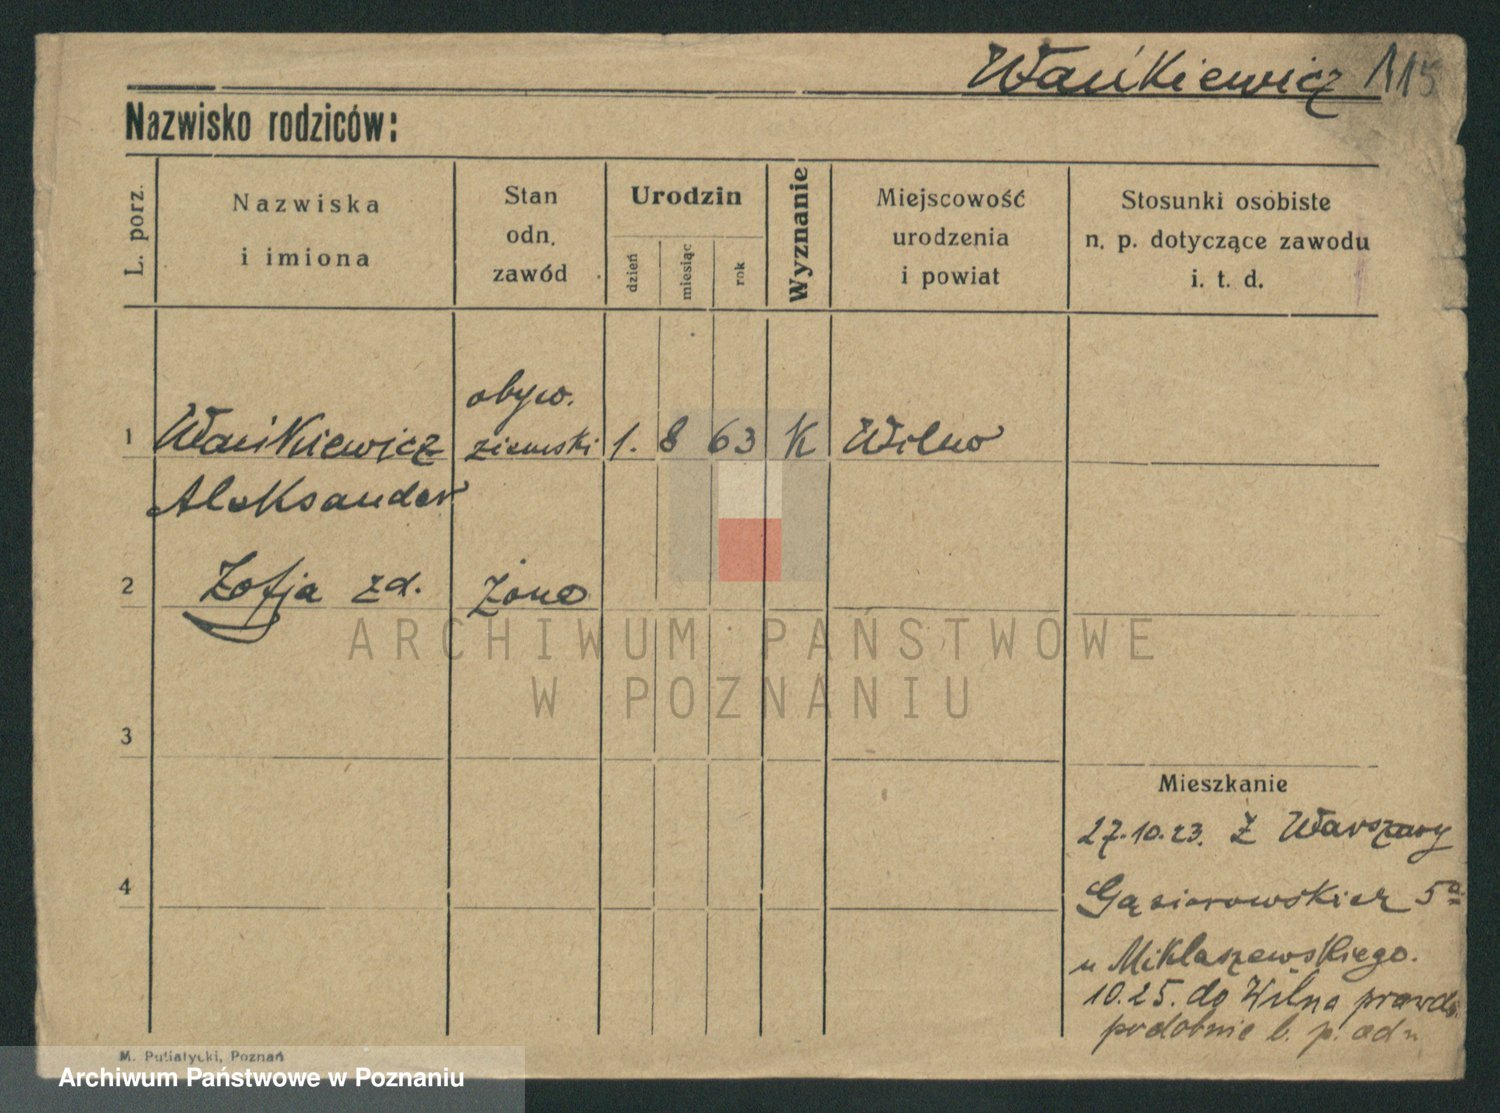 Wańkiewicz 115
Nazwisko rodziców:
L. porz.
Nazwiska
i imiona
Stan
odn.
zawód
Urodzin
dzień
miesiąc
rok
Wyznanie
Miejscowość
urodzenia
i powiat
Stosunki osobiste
n. p. dotyczące zawodu
i. t. d.
obyw.
1 Wańkiewicz ziemski 1. 8 63 K Wilno
Aleksander
2 Zofja zd. żona
ARCHIWUM PAŃSTWOWE
W POZNANIU
3
Mieszkanie
27.10.23. Z Warszawy
4
Gąsiorowskich 5a
u Miklaszewskiego.
10.25. do Wilna prawdo
podobnie b. p. adr
M. Putiatycki, Poznań
Archiwum Państwowe w Poznaniu